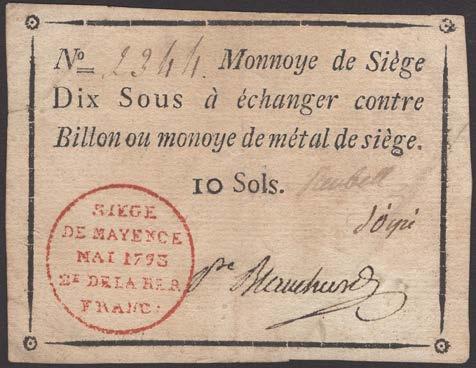 No 2344. Monnoye de Siège
Dix Sous à échanger contre
Billon ou monoye de métal de siège.
10 Sols.
SIEGE
DE MAYENCE
MAI 1793
2E DE LA REP
FRANC: